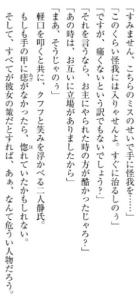 「すみません、こちらのミスのせいで手に怪我を……」
「このくらい怪我には入りゃせん。すぐに治るしのぅ」
「ですが、痛くないという訳でもないでしょう」
「それを言うなら、お主にやられた時の方が酷かったじゃろ？」
「あの時は、お互いに立場がありましたから」
「まあ、そうじゃのぅ」
軽口を叩くと共に、クフフと笑みを浮かべる二人静氏。
もしも手の甲に痣がなかったら、惚れていたかもしれない。
そして、すべてが彼女の策だとすれば、あぁ、なんて危うい人物だろう。